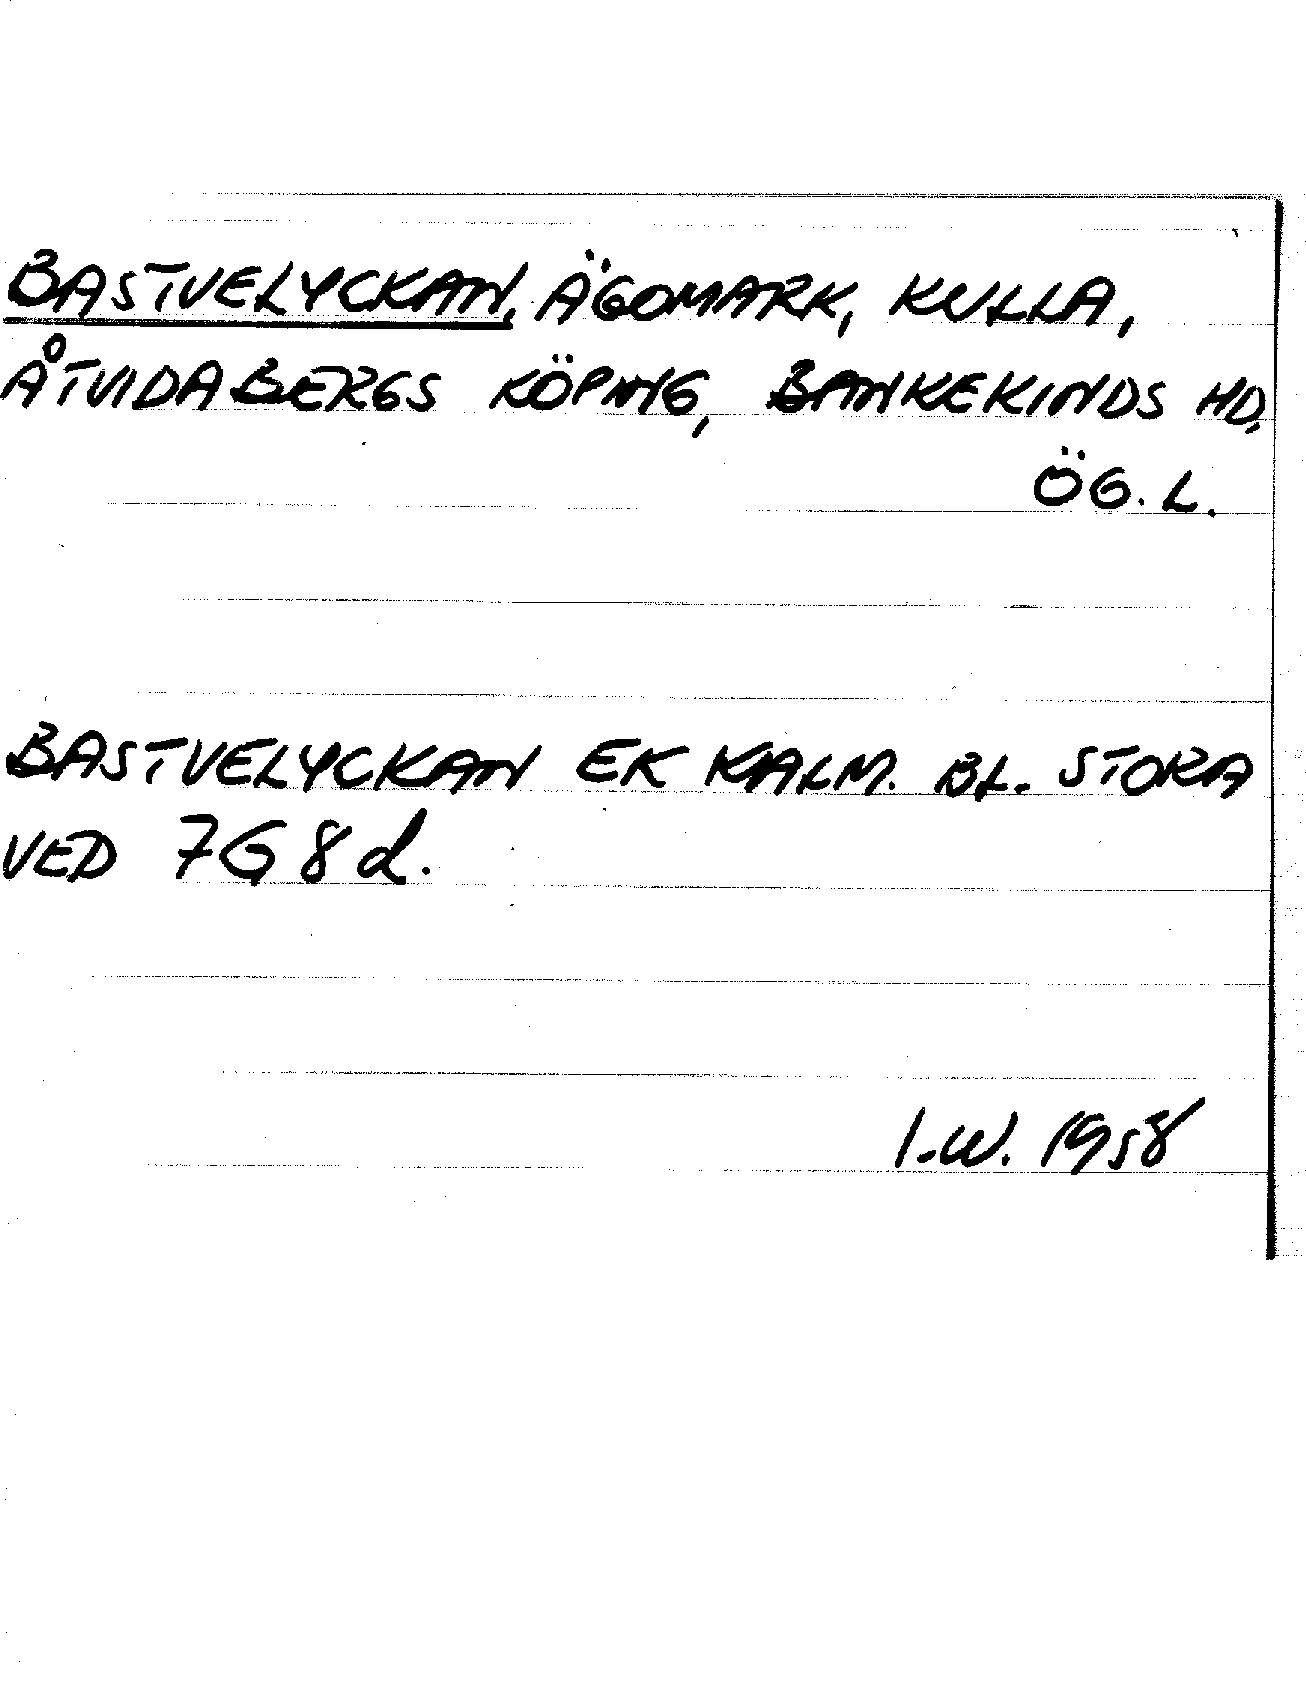 BASTVELYCKAN, ÄGOMARK, KULLA,
ÅTVIDABERGS KÖPING, BANKEKINDS HD,
ÖG. L.
BASTVELYCKAN EK KALM. BL. STORA
VED 7G 8d.
I.W. 1958